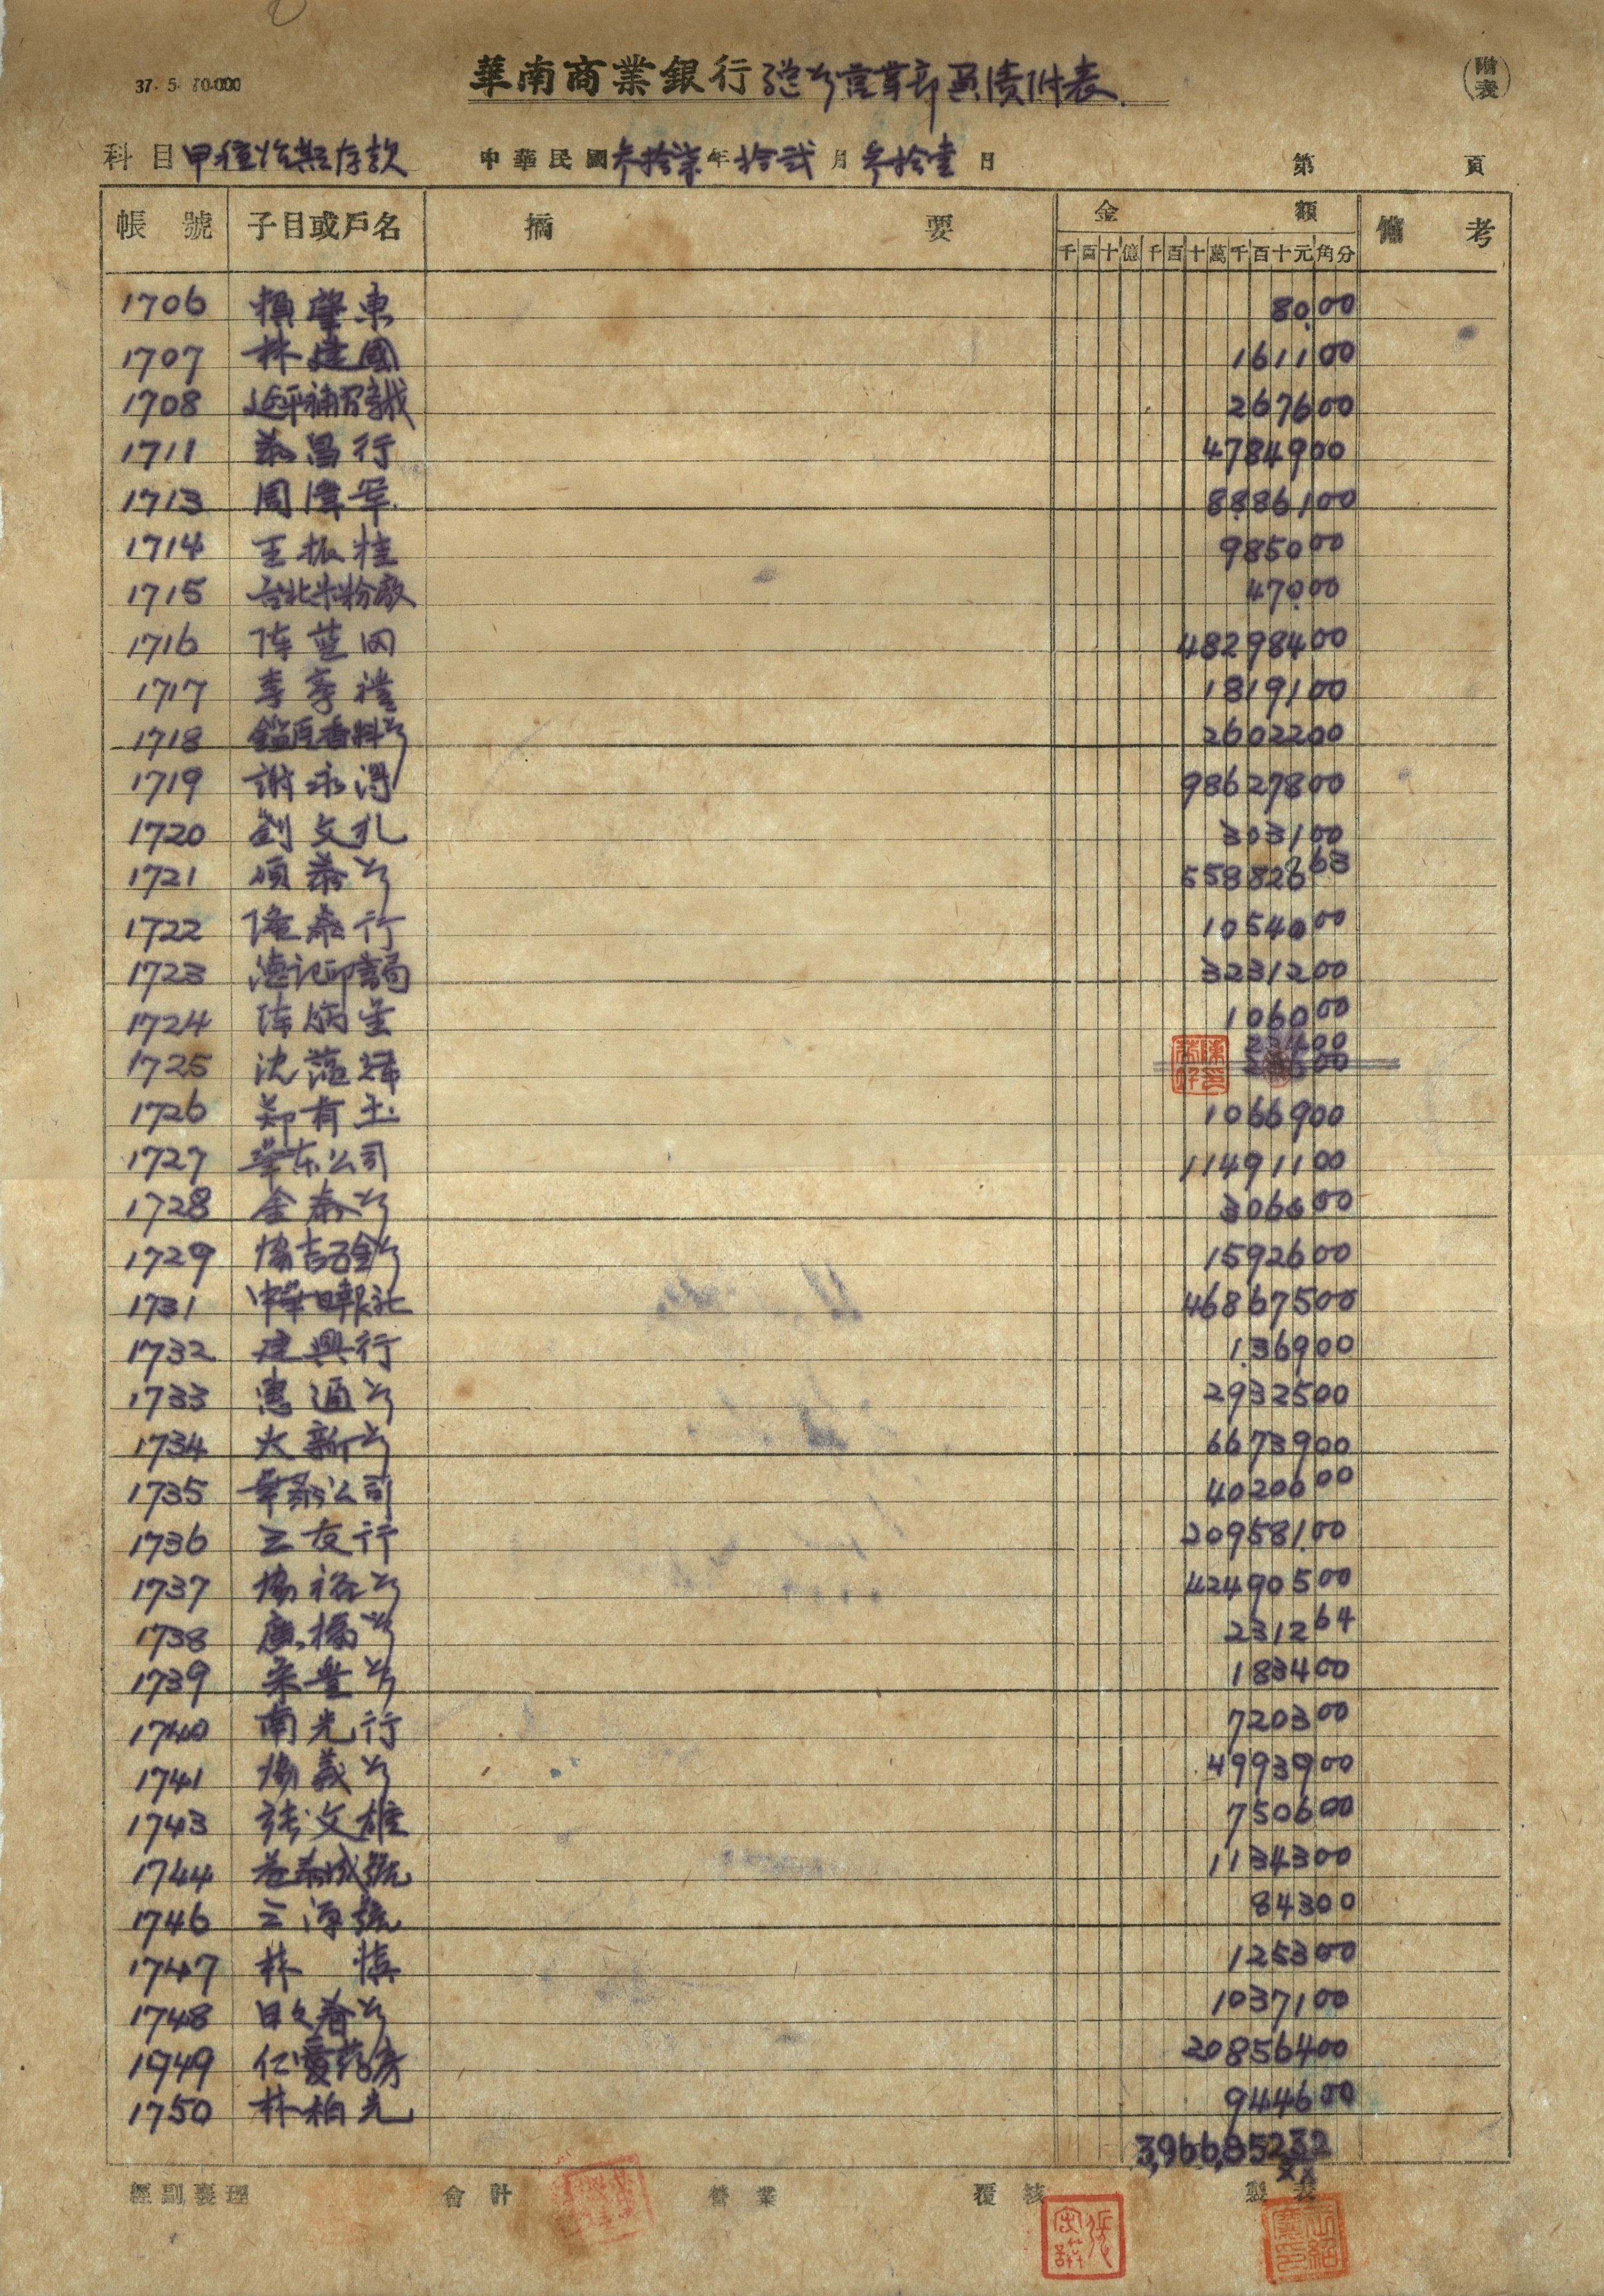 37. 5. 70.000
華南商業銀行總公營業部負債附表
(附表)
科目 甲種活期存款 中華民國叁拾柒年拾弍月叁拾壹日 第 頁
帳號 子目或戶名 摘要 金額 備考
千百十億千百十萬千百十元角分
1706 賴肇東 80.00
1707 林建國 161100
1708 延平補習 267600
1711 泰昌行 4784900
1713 周 8886100
1714 王振桂 985000
1715 台北米粉廠 47000
1716 陈 48298400
1717 李 1819100
1718 香料公 2602200
1719 謝永得 98627800
1720 劉文 303100
1721 順泰公 55882663
1722 隆泰行 1054000
1723 德記印書局 3231200
1724 陈炳 106000
1725 沈 00
1726 郑有 1066900
1727 華东公司 11491100
1728 金泰公 306600
1729 協吉五金公 1592600
1731 中華日報社 46867500
1732 建興行 136900
1733 惠通公 2932500
1734 大新公 6673900
1735 華泰公司 4020000
1736 三友行 20958100
1737 協裕公 42490500
1738 公 231264
1739 豊公 183400
1740 南光行 720300
1741 協義公 4993900
1743 張文雄 750600
1744 泰成號 1134300
1746 三源號 84300
1747 林 慎 125300
1748 日々春公 1037100
1949 仁愛药房 20856400
1750 林柏光 944600
3,966,85232
經副襄理 會計 營業 覆核 製表